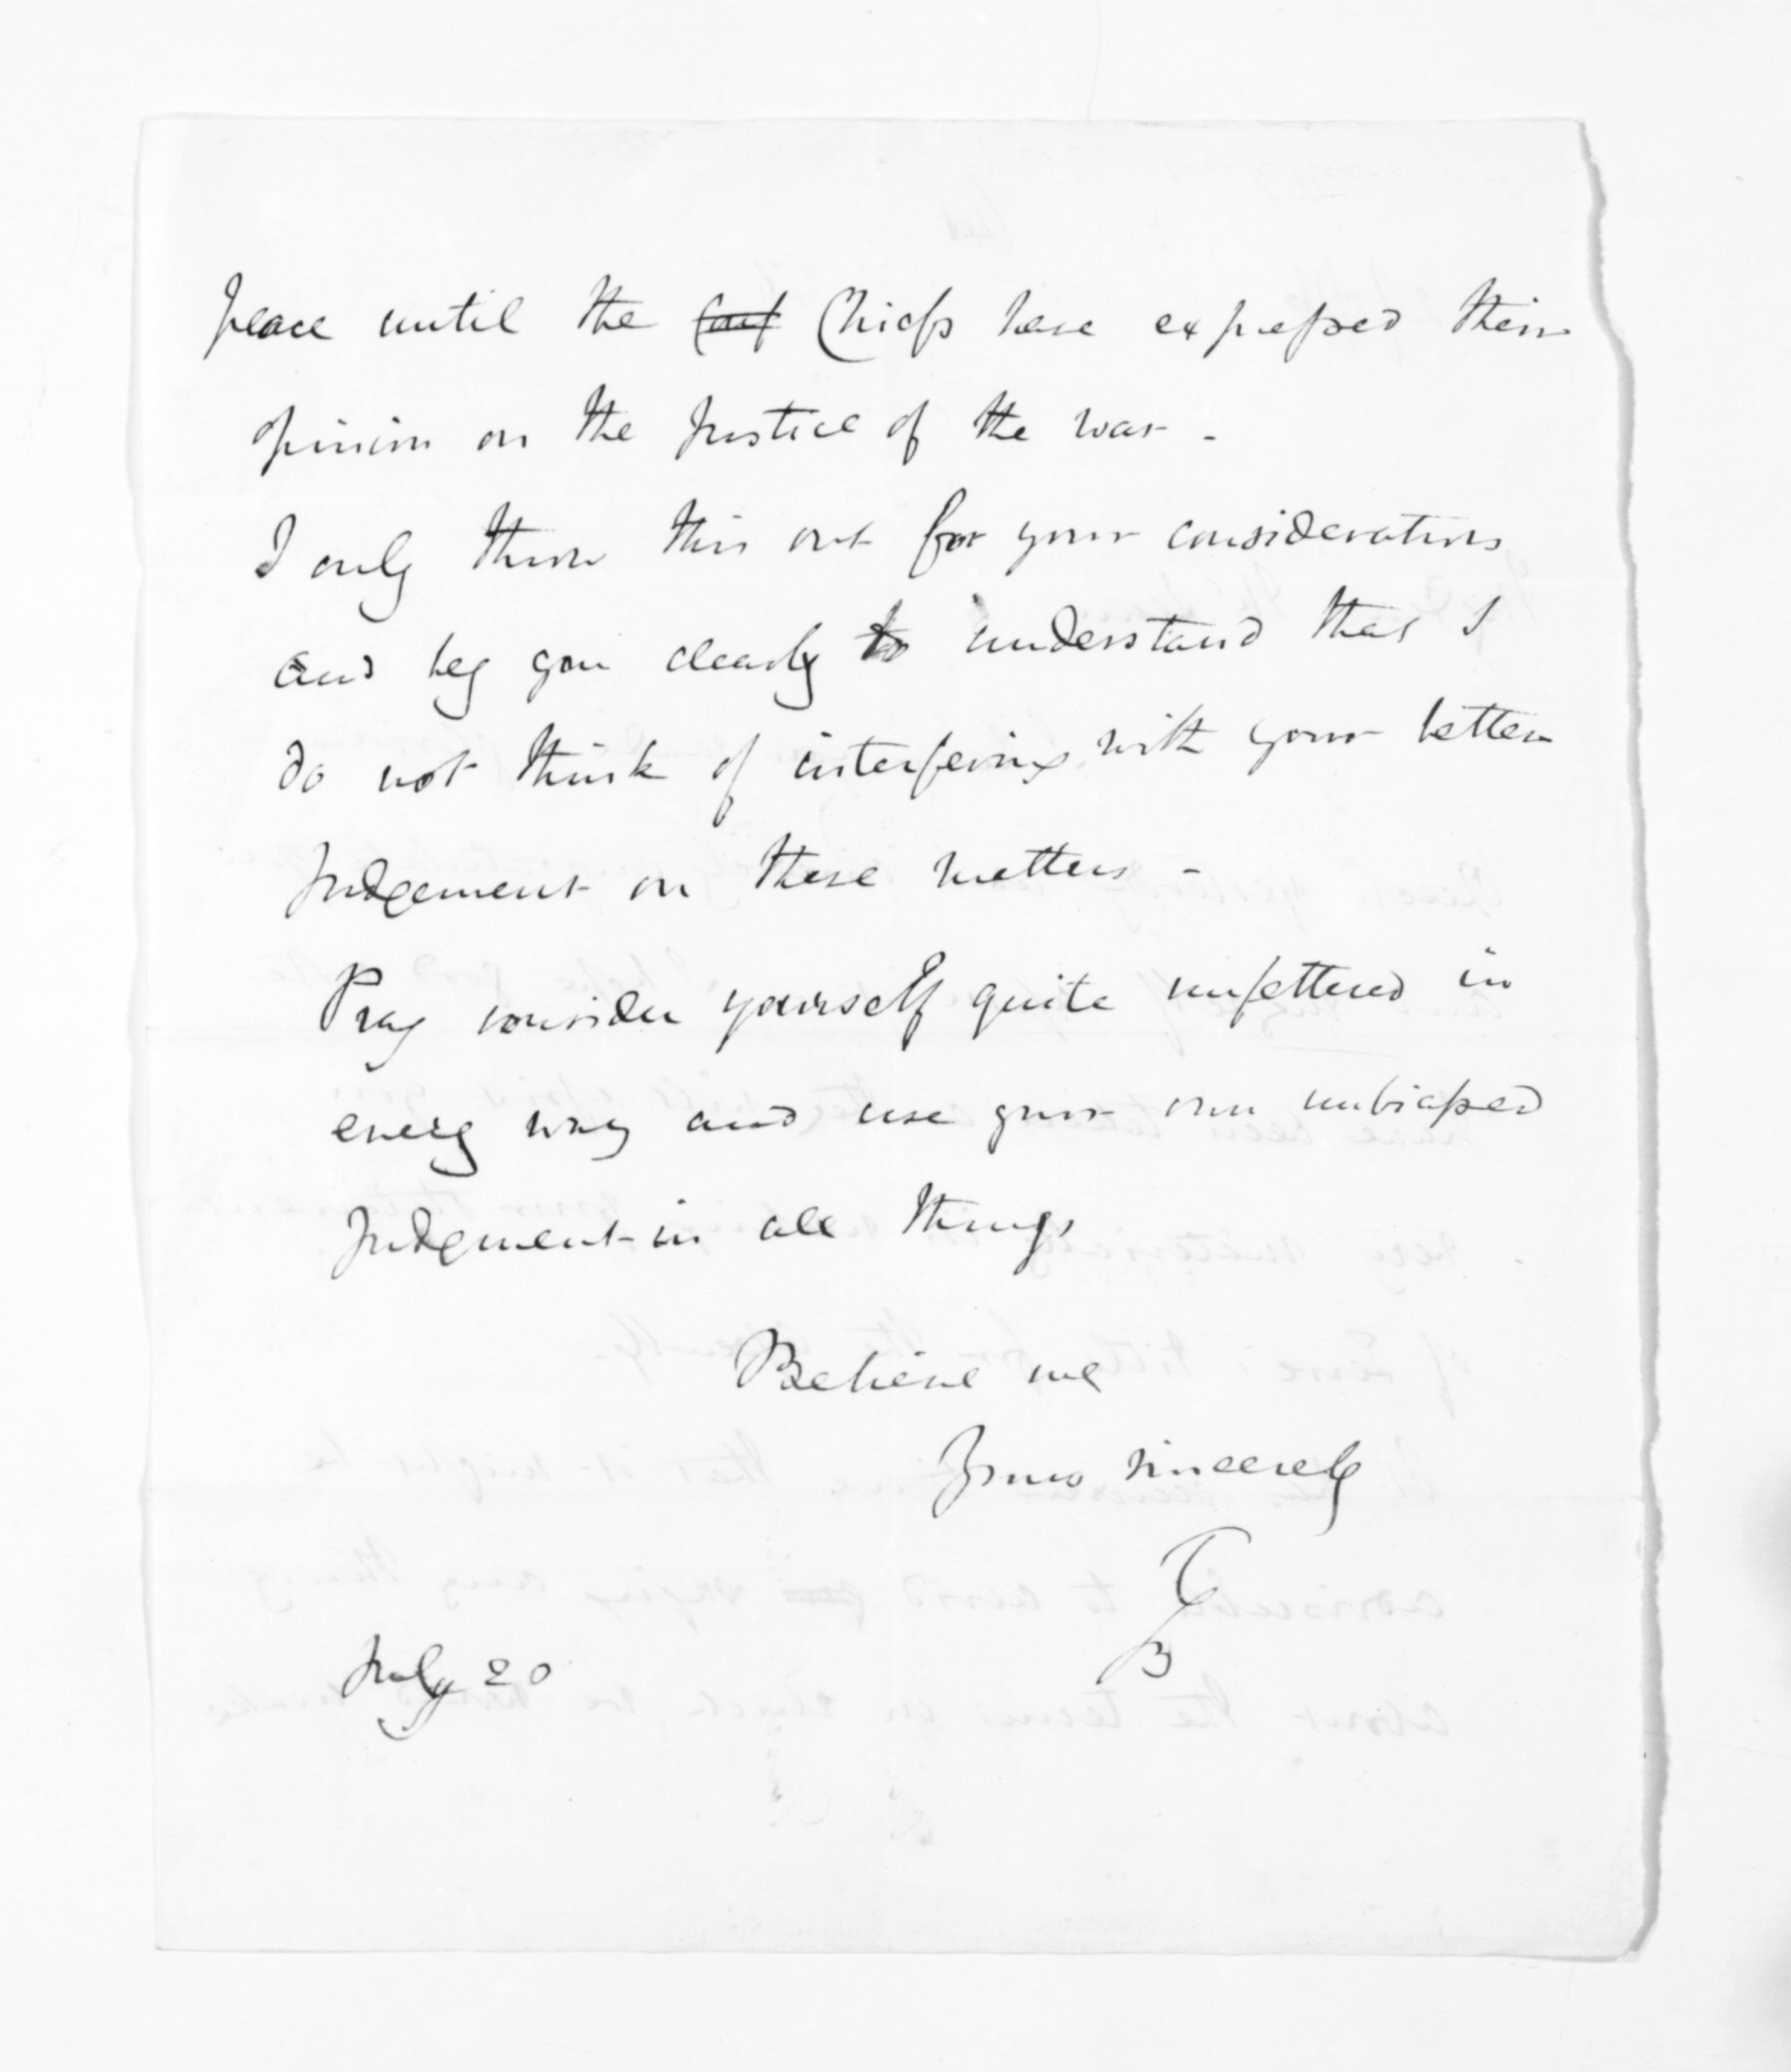 peace until the Chiefs have expressed their
opinion on the Justice of the war -
I only throw this out for your consideration
and beg you clearly to understand that I
do not think of interfering with your better
Judgement on these matters -
Pray consider yourself quite unfettered in
every way and use your own unbiassed
Judgment in all things
Believe me
Yours sincerely
T
B
July 20